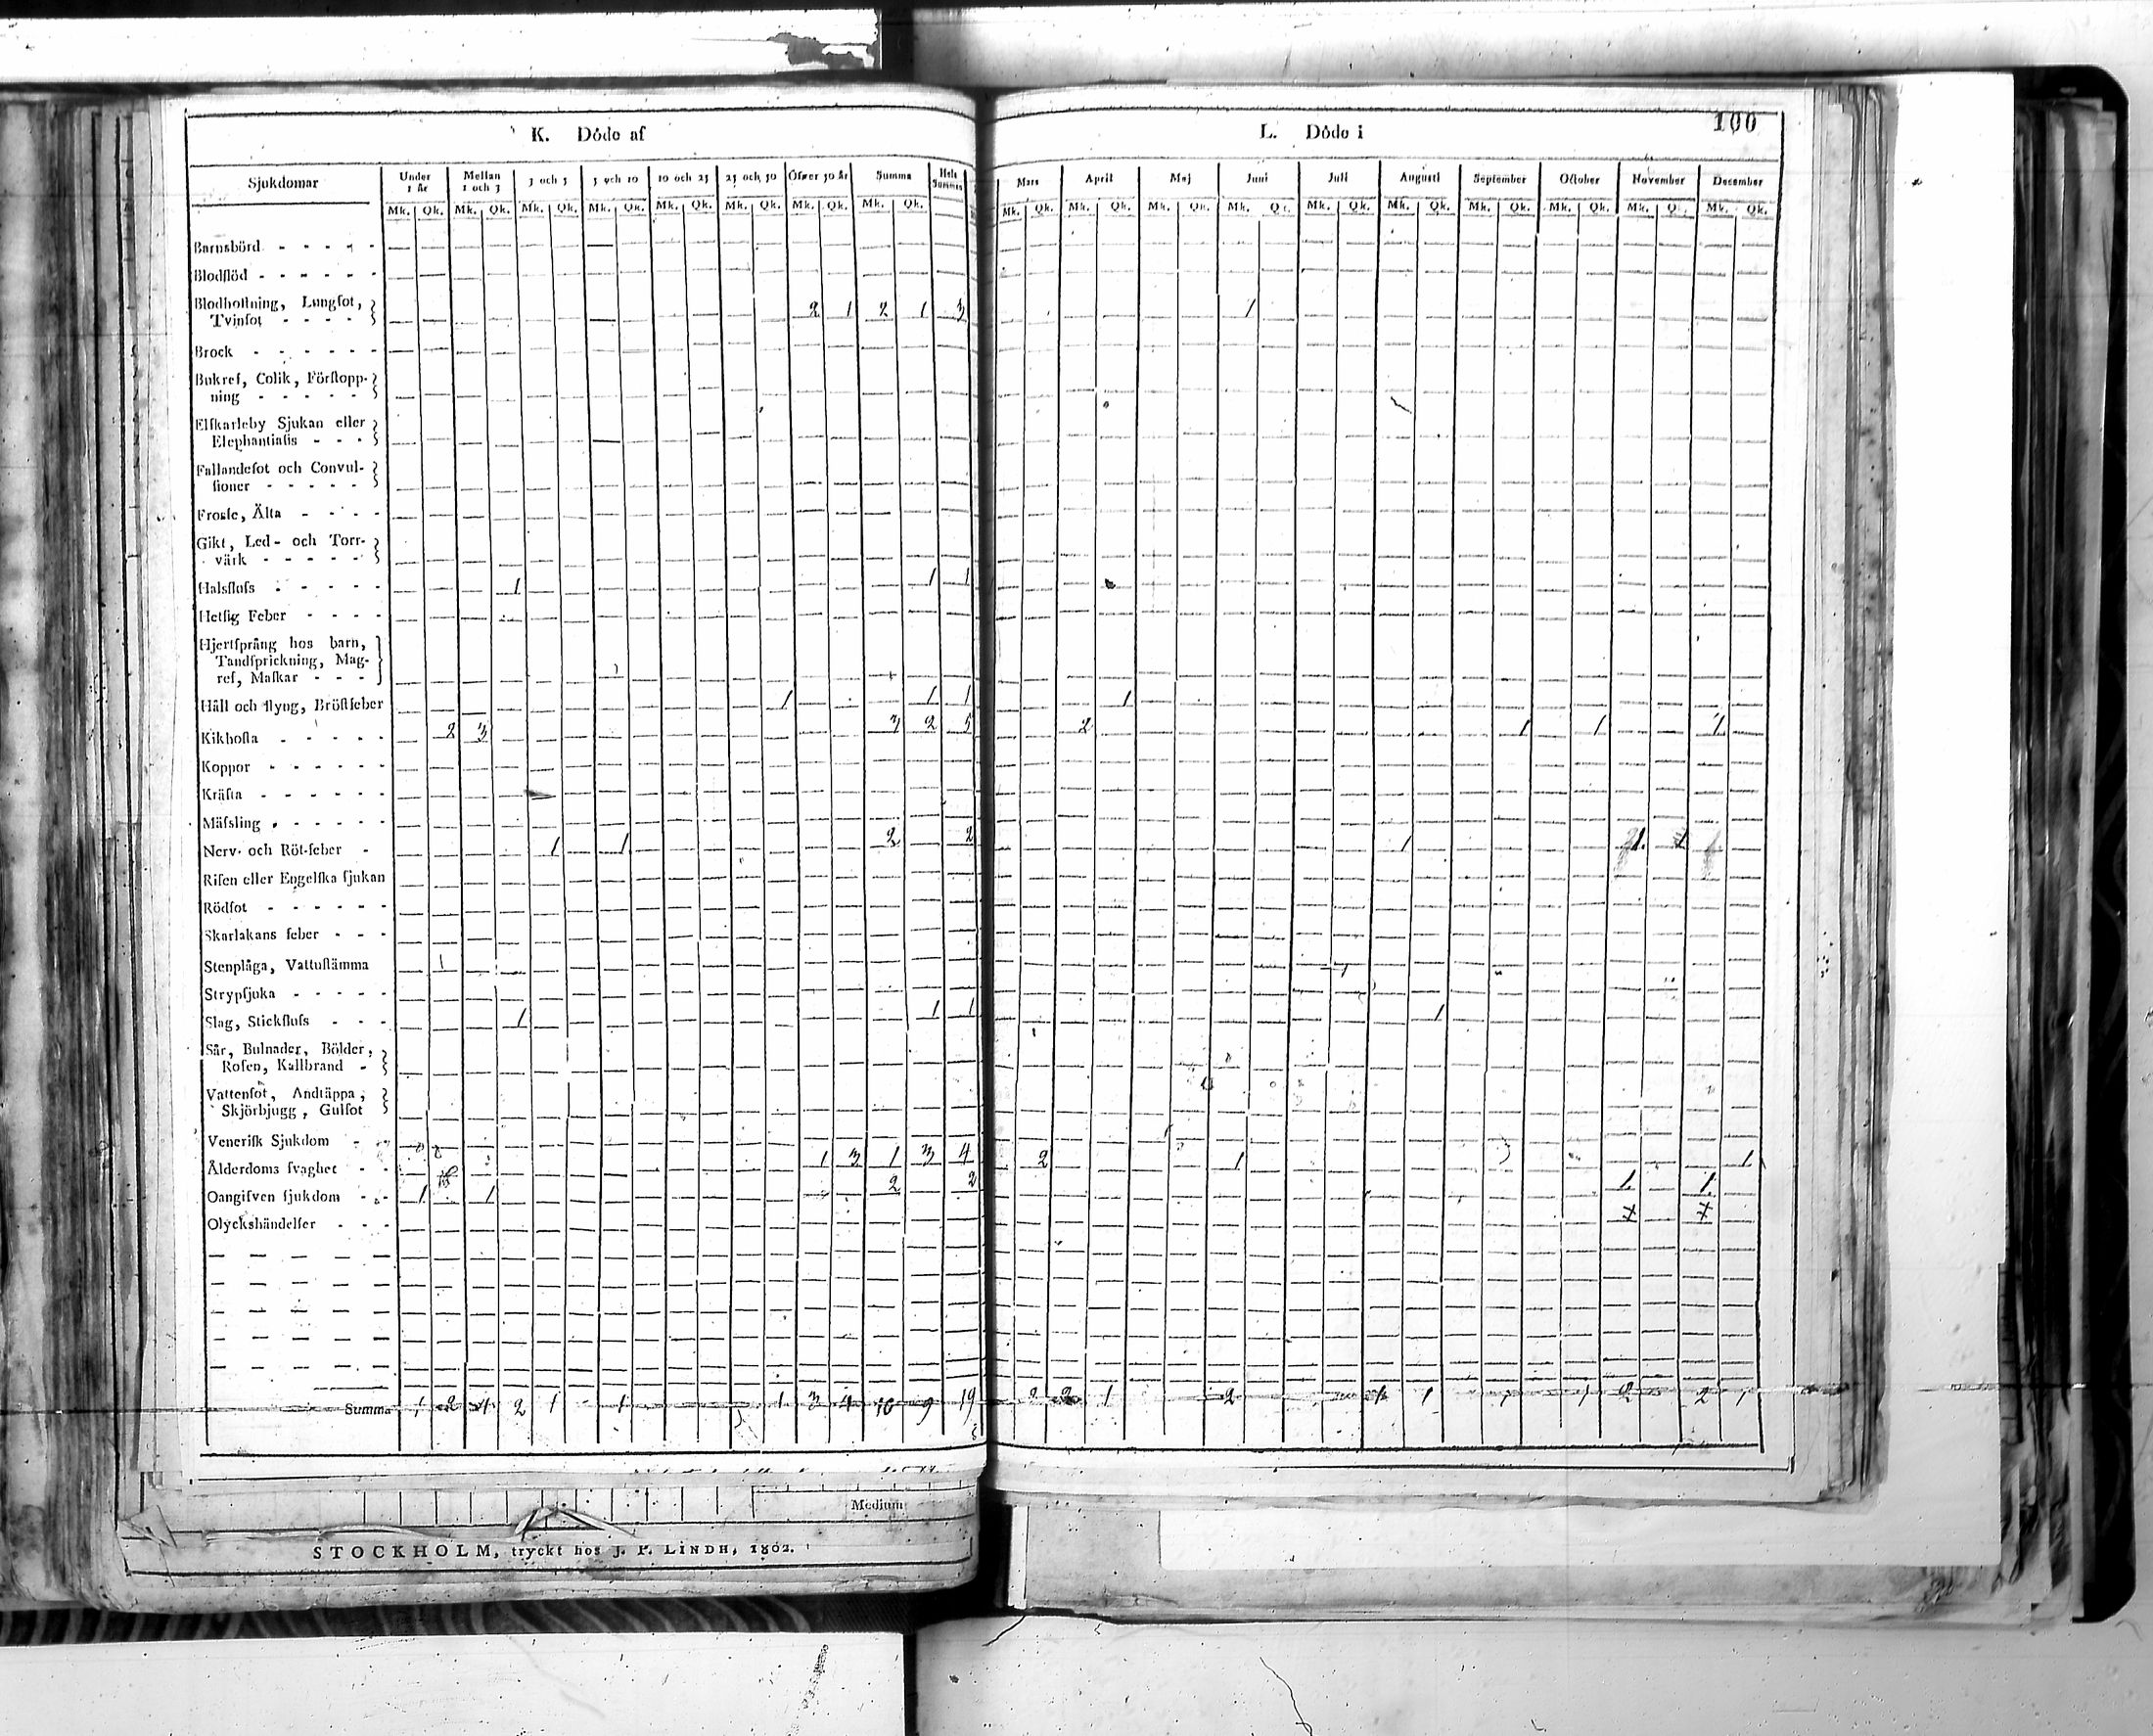 K. Döde af
Sjukdomar
Under 1 år
Mellan 1 och 3
3 och 5
5 och 10
10 och 25
25 och 50
Öfver 50 år
Summa
Hela Summan
Mk. Qk. Mk. Qk. Mk. Qk. Mk. Qk. Mk. Qk. Mk. Qk. Mk. Qk. Mk. Qk.
Barnsbörd
Blodflöd
Blodhoſtning, Lungſot,
Tvinſot 2 1 2 1 3
Brock
Bukref, Colik, Förſtopp-
ning
Elfkarleby Sjukan eller
Elephantiaſis
Fallandeſot och Convul-
ſioner
Froſſe, Älta
Gikt, Led- och Torr-
värk
Halsfluſs 1 1 1
Hetſig Feber
Hjertſprång hos barn,
Tandſprickning, Mag-
ref, Maſkar
Håll och ſtyng, Bröſtfeber 1 1 1
Kikhoſta 2 3 3 2 5
Koppor
Kräfta
Mäſsling
Nerv- och Röt-feber 1 1 2 2
Riſen eller Engelſka ſjukan
Rödſot
Skarlakans feber
Stenplåga, Vattuſtämma
Strypſjuka
Slag, Stickfluſs 1 1 1
Sår, Bulnader, Bölder,
Roſen, Kallbrand
Vattenſot, Andtäppa,
Skjörbjugg, Gulſot
Veneriſk Sjukdom
Ålderdoms ſvaghet 1 3 1 3 4
Oangifven ſjukdom 1 1 2 2
Olyckshändelſer
Summa 1 2 4 2 1 1 1 3 4 10 9 19
Medium
STOCKHOLM, tryckt hos J. P. LINDH, 1802.
L. Döde i
100
Mars April Maj Juni Juli Auguſti September October November December
Mk. Qk. Mk. Qk. Mk. Qk. Mk. Qk. Mk. Qk. Mk. Qk. Mk. Qk. Mk. Qk. Mk. Qk. Mk. Qk.
1
1
2 1 1 1
1
1
2 1 1
1 1
2 2 1 2 1 1 1 1 2 2 1